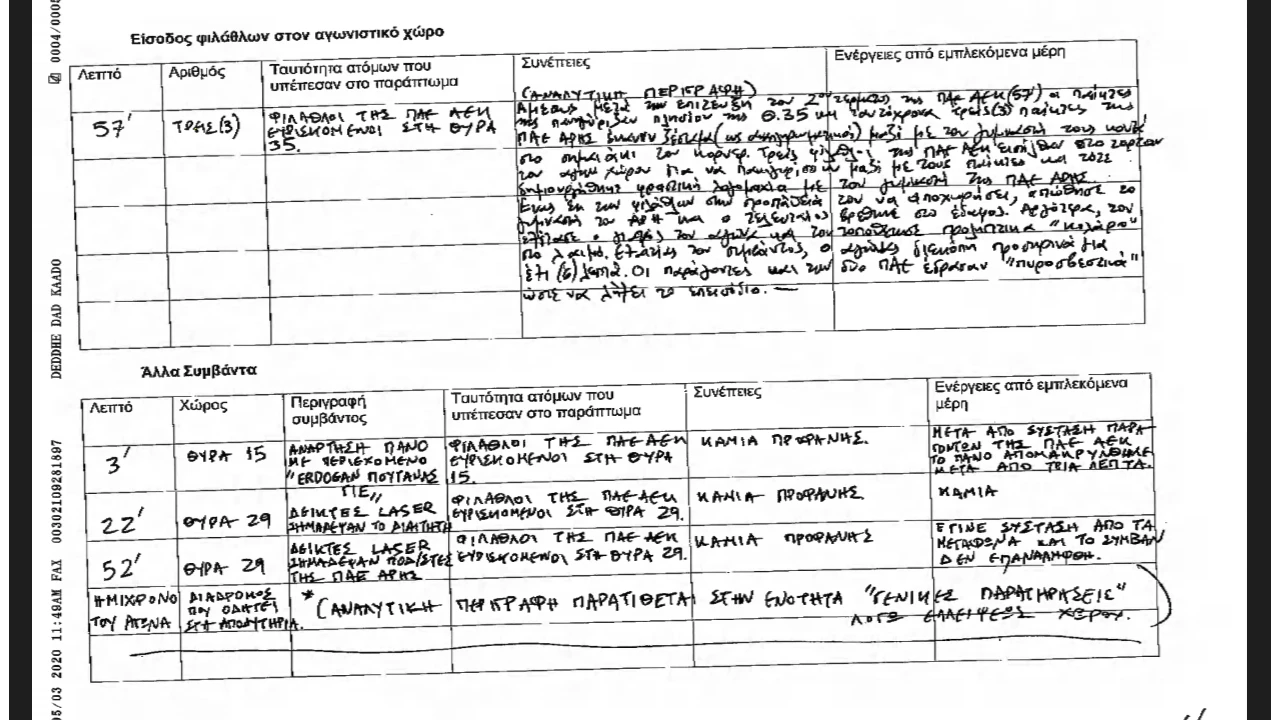 0004/0005
DEDDHE DAD KAADO
00302109281897
05/03 2020 11:49AM FAX
Είσοδος φιλάθλων στον αγωνιστικό χώρο
Λεπτό Αριθμός Ταυτότητα ατόμων που υπέπεσαν στο παράπτωμα Συνέπειες Ενέργειες από εμπλεκόμενα μέρη
57' ΤΡΕΙΣ(3) ΦΙΛΑΘΛΟΙ ΤΗΣ ΠΑΕ ΑΕΚ
ΕΥΡΙΣΚΟΜΕΝΟΙ ΣΤΗ ΘΥΡΑ
35.
(ΑΝΑΛΥΤΙΚΗ ΠΕΡΙΓΡΑΦΗ)
Αμέσως μετά την επίτευξη του 2ου τέρματος της ΠΑΕ ΑΕΚ (57') οι παίκτες
της πανηγύριζαν πλησίον της Θ.35 και ταυτόχρονα τρείς(3) παίκτες της
ΠΑΕ ΑΡΗΣ έκαναν ζέσταμα (ως αναπληρωματικοί) μαζί με τον γυμναστή τους κοντά
στο σημαιάκι του κόρνερ. Τρεις φίλαθλοι της ΠΑΕ ΑΕΚ εισήλθαν στο ταρτάν
του αγων. χώρου για να πανηγυρίσουν μαζί με τους παίκτες και τότε
δημιουργήθηκε φραστική λογομαχία με τον γυμναστή της ΠΑΕ ΑΡΗΣ.
Ένας εκ των φιλάθλων στην προσπάθειά του να αποχωρήσει, απώθησε το
γυμναστή του ΑΡΗ και ο τελευταίος βρέθηκε στο έδαφος. Αργότερα, τον
εξέτασε ο γιατρός του αγώνα και του τοποθέτησε προληπτικά "κολάρο"
στο λαιμό. Εξαιτίας του συμβάντος, ο αγώνας διεκόπη προσωρινά για
έξι (6) λεπτά. Οι παράγοντες και των δύο ΠΑΕ έδρασαν "πυροσβεστικά"
ώστε να λήξει το επεισόδιο.
Άλλα Συμβάντα
Λεπτό Χώρος Περιγραφή συμβάντος Ταυτότητα ατόμων που υπέπεσαν στο παράπτωμα Συνέπειες Ενέργειες από εμπλεκόμενα μέρη
3' ΘΥΡΑ 15 ΑΝΑΡΤΗΣΗ ΠΑΝΟ
ΜΕ ΠΕΡΙΕΧΟΜΕΝΟ
"ERDOGAN ΠΟΥΤΑΝΑΣ
ΓΙΕ"
ΦΙΛΑΘΛΟΙ ΤΗΣ ΠΑΕ ΑΕΚ
ΕΥΡΙΣΚΟΜΕΝΟΙ ΣΤΗ ΘΥΡΑ
15.
ΚΑΜΙΑ ΠΡΟΦΑΝΗΣ.
ΜΕΤΑ ΑΠΟ ΣΥΣΤΑΣΗ ΠΑΡΑ
ΓΟΝΤΩΝ ΤΗΣ ΠΑΕ ΑΕΚ
ΤΟ ΠΑΝΟ ΑΠΟΜΑΚΡΥΝΘΗΚΕ
ΜΕΤΑ ΑΠΟ ΤΡΙΑ ΛΕΠΤΑ.
22' ΘΥΡΑ 29 ΔΕΙΚΤΕΣ LASER
ΣΗΜΑΔΕΨΑΝ ΤΟ ΔΙΑΙΤΗΤΗ
ΦΙΛΑΘΛΟΙ ΤΗΣ ΠΑΕ ΑΕΚ
ΕΥΡΙΣΚΟΜΕΝΟΙ ΣΤΗ ΘΥΡΑ 29.
ΚΑΜΙΑ ΠΡΟΦΑΝΗΣ.
ΚΑΜΙΑ
52' ΘΥΡΑ 29 ΔΕΙΚΤΕΣ LASER
ΣΗΜΑΔΕΨΑΝ ΠΟΔ/ΣΤΕΣ
ΤΗΣ ΠΑΕ ΑΡΗΣ
ΦΙΛΑΘΛΟΙ ΤΗΣ ΠΑΕ ΑΕΚ
ΕΥΡΙΣΚΟΜΕΝΟΙ ΣΤΗ ΘΥΡΑ 29.
ΚΑΜΙΑ ΠΡΟΦΑΝΗΣ
ΕΓΙΝΕ ΣΥΣΤΑΣΗ ΑΠΟ ΤΑ
ΜΕΓΑΦΩΝΑ ΚΑΙ ΤΟ ΣΥΜΒΑΝ
ΔΕΝ ΕΠΑΝΑΛΗΦΘΗ.
ΗΜΙΧΡΟΝΟ
ΤΟΥ ΑΓΩΝΑ
ΔΙΑΔΡΟΜΟΣ
ΠΟΥ ΟΔΗΓΕΙ
ΣΤΑ ΑΠΟΔΥΤΗΡΙΑ.
* (ΑΝΑΛΥΤΙΚΗ ΠΕΡΙΓΡΑΦΗ ΠΑΡΑΤΙΘΕΤΑΙ ΣΤΗΝ ΕΝΟΤΗΤΑ "ΓΕΝΙΚΕΣ ΠΑΡΑΤΗΡΗΣΕΙΣ"
ΛΟΓΩ ΕΛΛΕΙΨΕΩΣ ΧΩΡΟΥ.)